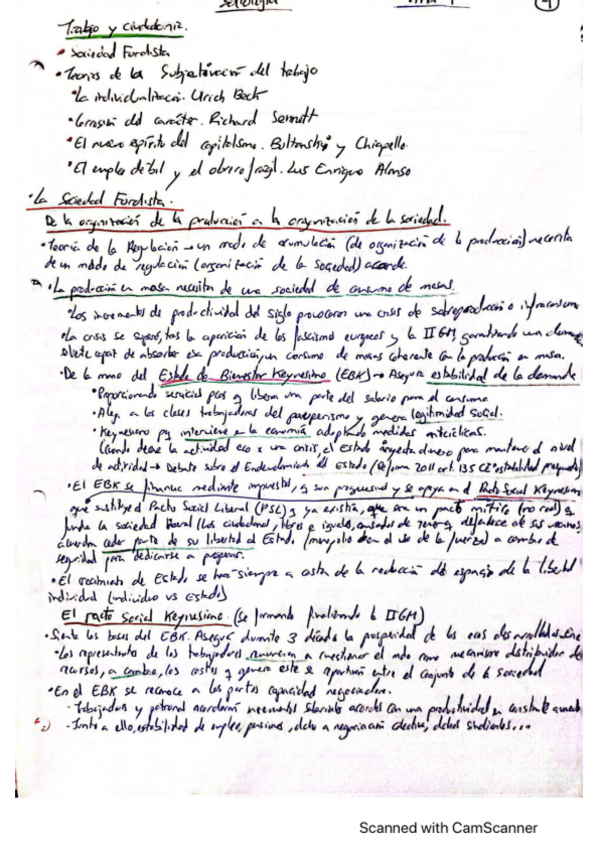 Trabajo y ciudadanía.
• Sociedad Fordista
• Teorías de la Subjetivación del trabajo
• La individualización. Ulrich Beck
• Corrosión del carácter. Richard Sennett
• El nuevo espíritu del capitalismo. Boltanski y Chiapello
• El empleo débil y el obrero frágil. Luis Enrique Alonso
• La Sociedad Fordista.
De la organización de la producción a la organización de la sociedad.
• Teoría de la Regulación → un modo de acumulación (de organización de la producción) necesita
de un modo de regulación (organización de la sociedad) acorde.
• La producción en masa necesita de una sociedad de consumo de masas.
• Los incrementos de productividad del siglo provocaron una crisis de sobreproducción o infraconsumo
• La crisis se superó, tras la aparición de los fascismo europeos y la IIGM, garantizando una demanda
capaz de absorber esa producción, un consumo de masas coherente con la producción en masa.
• De la mano del Estado de Bienestar Keynesiano (EBK) → Asegura estabilidad de la demanda
• Proporcionando servicios pcos y libera una parte del salario para el consumo
• Aleja a las clases trabajadoras del pauperismo y genera legitimidad social.
• Keynesiano pq interviene en la economía adoptando medidas anticíclicas.
(Cuando decae la actividad eco x una crisis, el Estado inyecta dinero para mantener el nivel
de actividad → Debate sobre el Endeudamiento del Estado (Reforma 2011 art. 135 CE "estabilidad
• El EBK se financia mediante impuestos, y son progresivos y se apoya en el Pacto Social Keynesiano
que sustituye al Pacto Social Liberal (PSL) q ya existía, que era un pacto mítico (no real) q
funda la sociedad liberal (Los ciudadanos, libres e iguales, cansados de y defenderse de sus vecinos,
acuerdan ceder parte de su libertad al Estado (monopolio del uso de la fuerza) a cambio de
seguridad para dedicarse a
• El crecimiento de Estado se hace siempre a costa de la reducción del espacio de la libertad
individual (individuo vs Estado)
El pacto Social Keynesiano. (Se formando finalizando la IIGM)
• Sienta las bases del EBK. Asegura durante 3 décadas la prosperidad de las ecos desarrolladas.
• Los representantes de los trabajadores renuncian a cuestionar el mdo como mecanismo distribuidor de
recursos, a cambio, los costes q genera este se repartirán entre el conjunto de la sociedad
• En el EBK se reconoce a las partes capacidad negociadora.
- Trabajadores y patronal acordarán incrementos salariales acordes con una productividad en constante aumento
- Junto a ello, estabilidad de empleo, pensiones, dcho a negociación colectiva, dchos sindicales...
Scanned with CamScanner